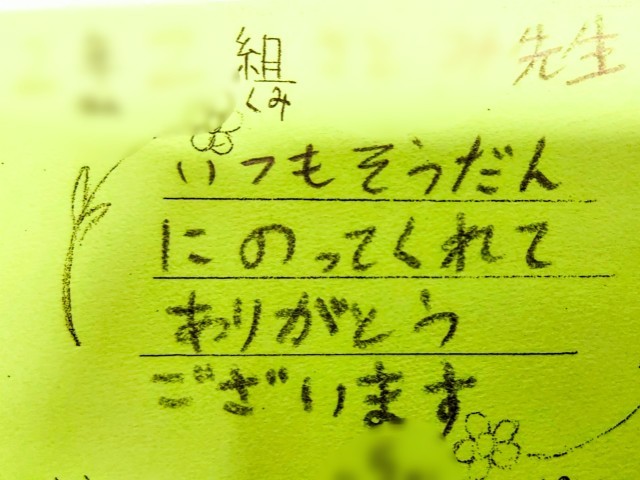 組 先生
くみ
いつもそうだん
にのってくれて
ありがとう
ございます